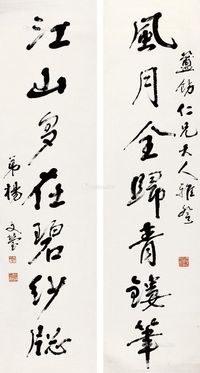 風月全歸青鏤筆
藎舫仁兄大人雅登
江山多在碧紗牕
弟楊文瑩